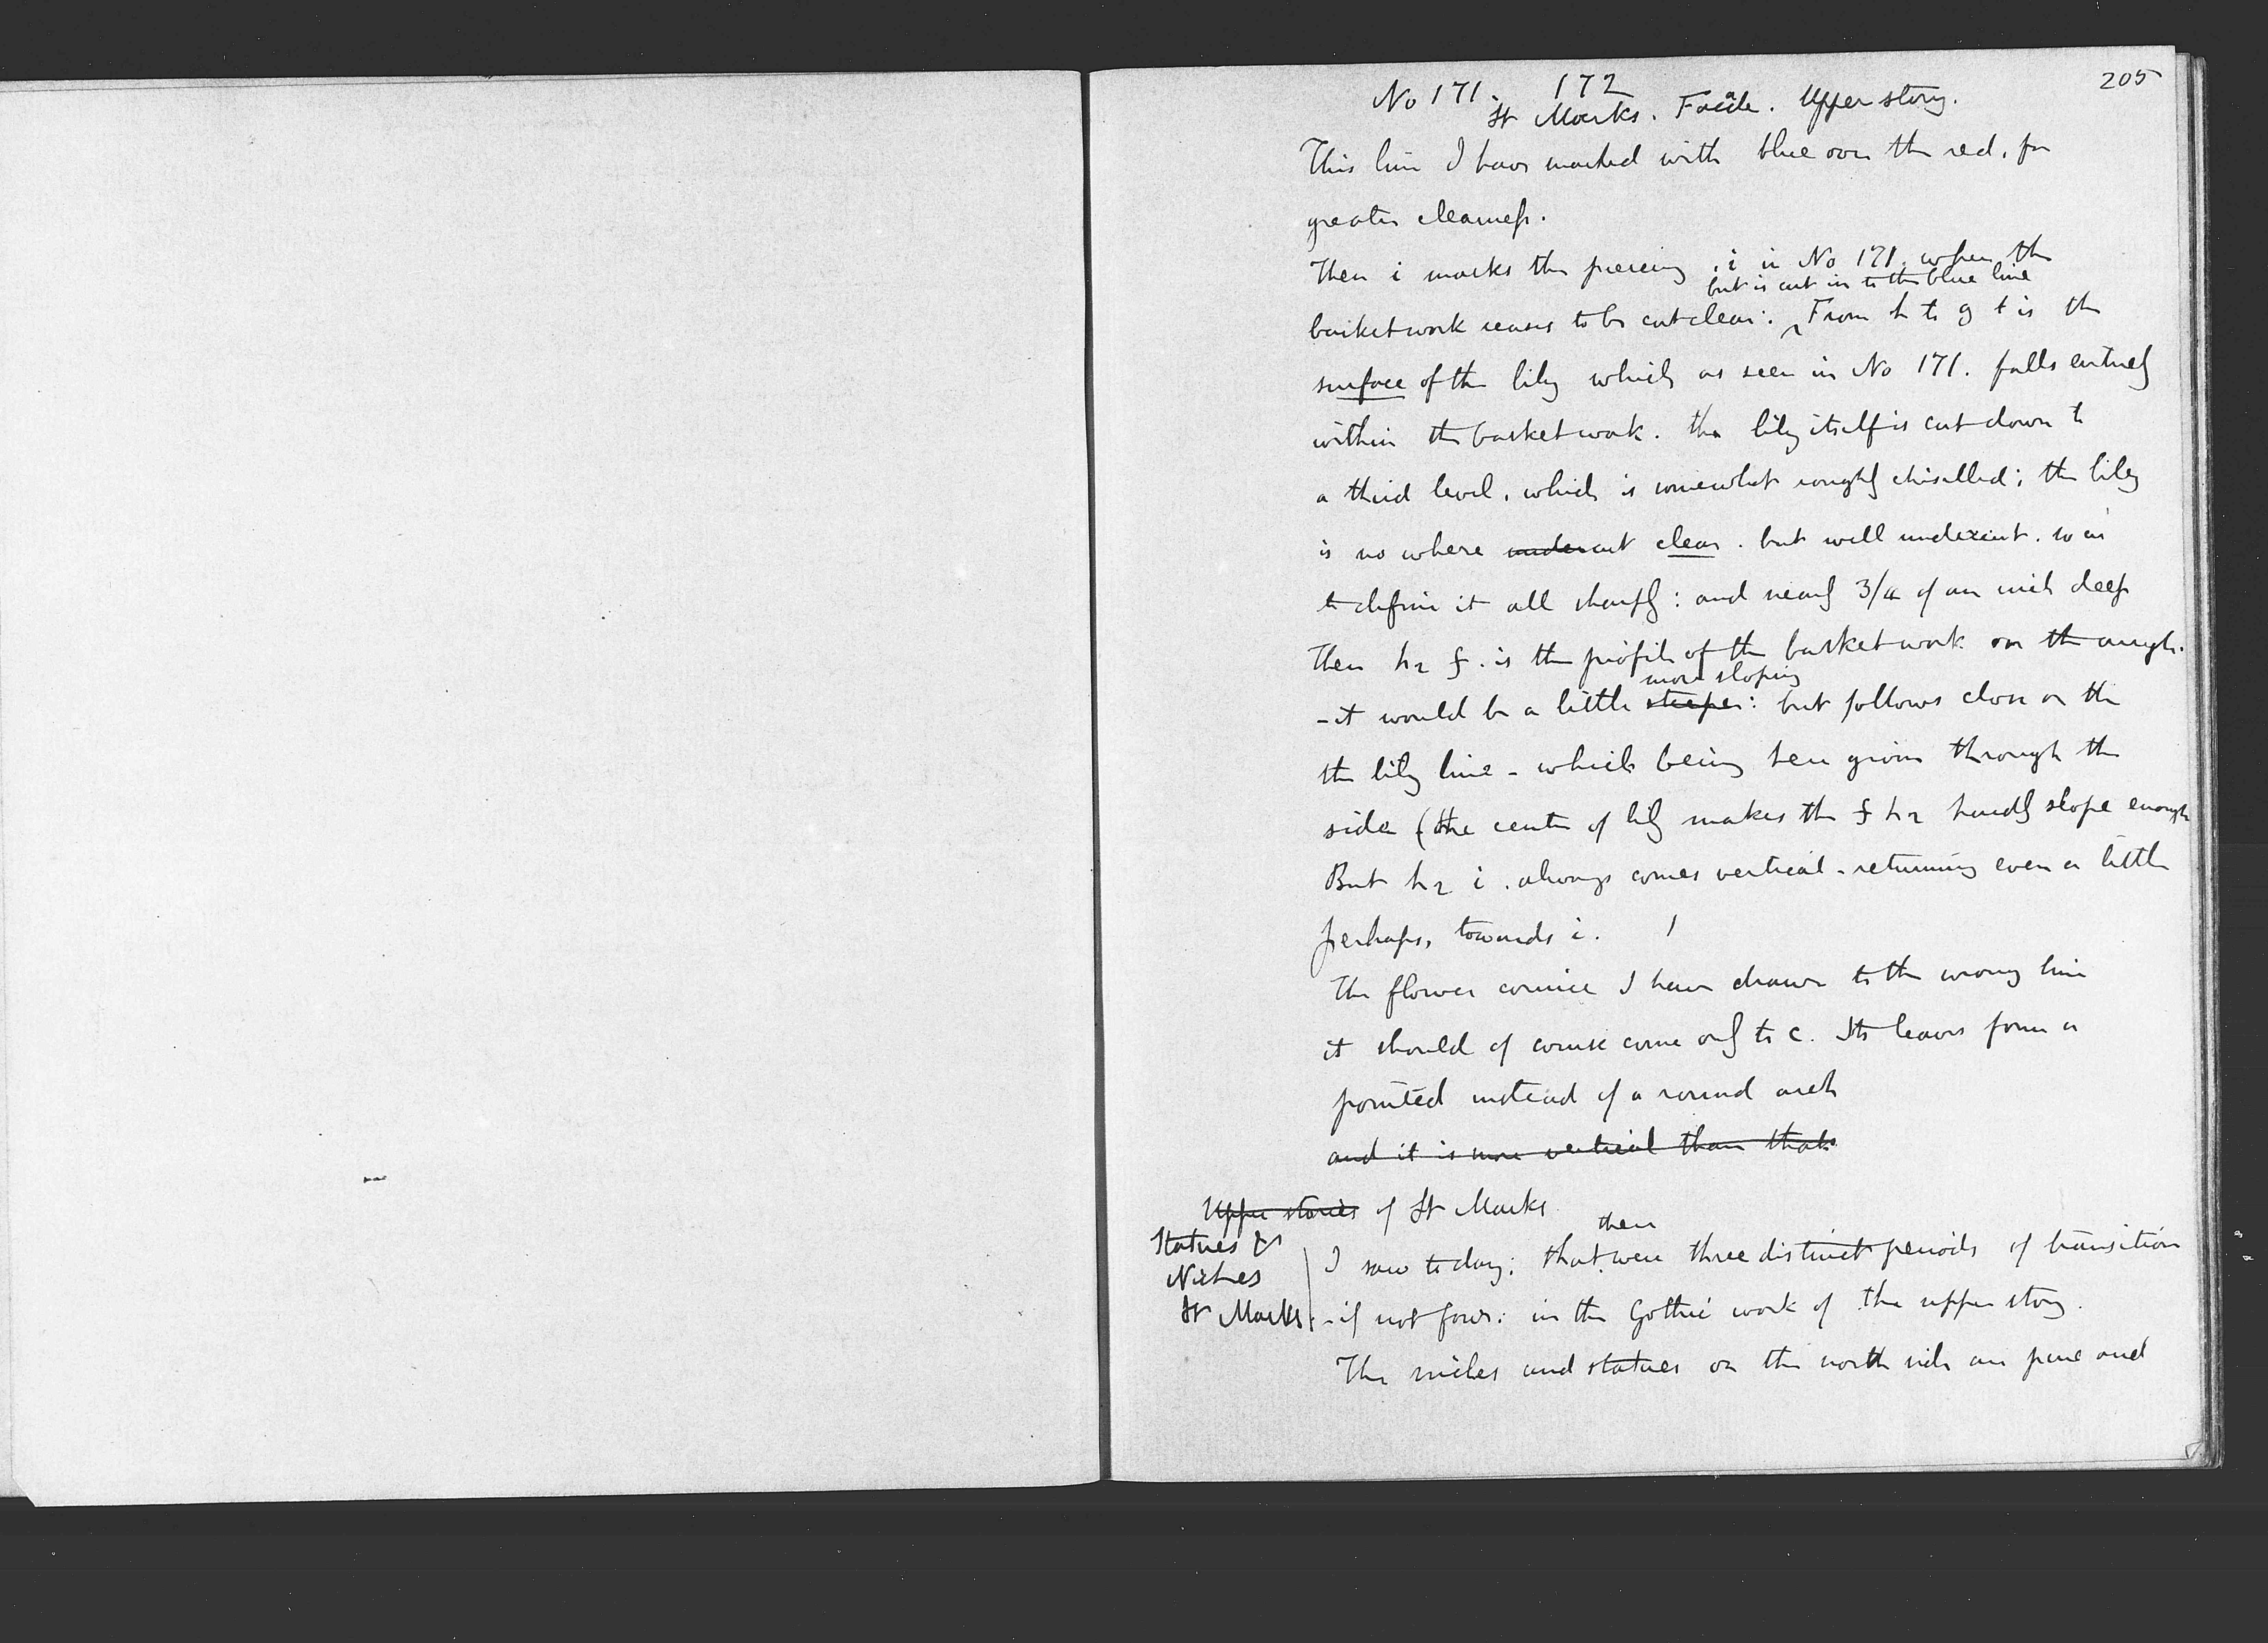 205
No 171. 172
St Marks. Facade. Upper story.
This line I have marked with blue over the red, for
greater clearness.
Then i marks the piercing, i in No 171. when the
but is cut in to the blue line
basketwork ceases to be cut clear: From h to g t is the
surface of the lily which as seen in No 171. falls entirely
within the basketwork. the lily itself is cut down to
a third level, which is somewhat roughly chiselled; the lily
is no where undercut clear. but well undercut. so as
to define it all sharply: and nearly 3/4 of an inch deep
Then h2 f. is the profile of the basketwork on the angle.
more sloping
- it would be a little steeper: but follows close on the
the lily line - which being here given through the
side (the centre of lily makes the f h2 hardly slope enough
But h2 i. always comes vertical - returning even a little
perhaps, towards i.
The flower cornice I have drawn to the wrong line
it should of course come only to c. Its leaves form a
pointed instead of a round arch
and it is more vertical than that
Upper stories of St Marks
Statues &
Niches
St Marks
there
I saw to day; that were three distinct periods of transition
- if not four: in the Gothic work of the upper story.
The niches and statues on the north side are pure and